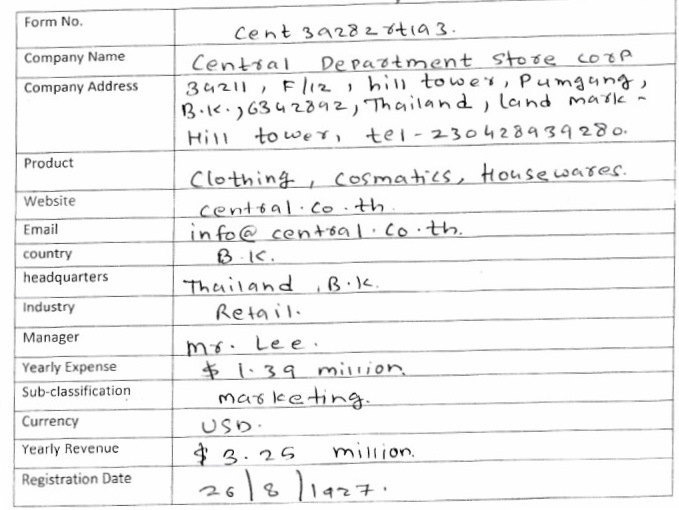 Form No. Cent 39282rt193.
Company Name Central Department Store corp
Company Address 34211, F/12, hill tower, Pumgang,
B.K., 6342892, Thailand, land mark -
Hill tower, tel - 230428939280.
Product Clothing, Cosmatics, Housewares.
Website central.co.th.
Email info@central.co.th.
country B.K.
headquarters Thailand, B.K.
Industry Retail.
Manager Mr. Lee.
Yearly Expense $ 1.39 million.
Sub-classification marketing.
Currency USD.
Yearly Revenue $ 3.25 million.
Registration Date 26/8/1927.